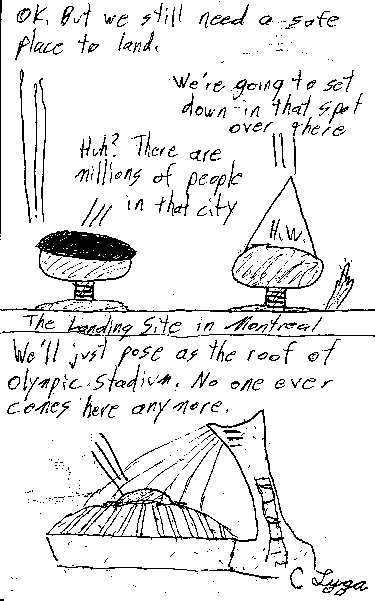 OK. But we still need a safe
place to land.
We're going to set
down in that spot
over there
Huh? There are
millions of people
in that city
H.W.
The Landing Site in Montreal
We'll just pose as the roof of
Olympic Stadium. No one ever
comes here anymore.
C Lyga